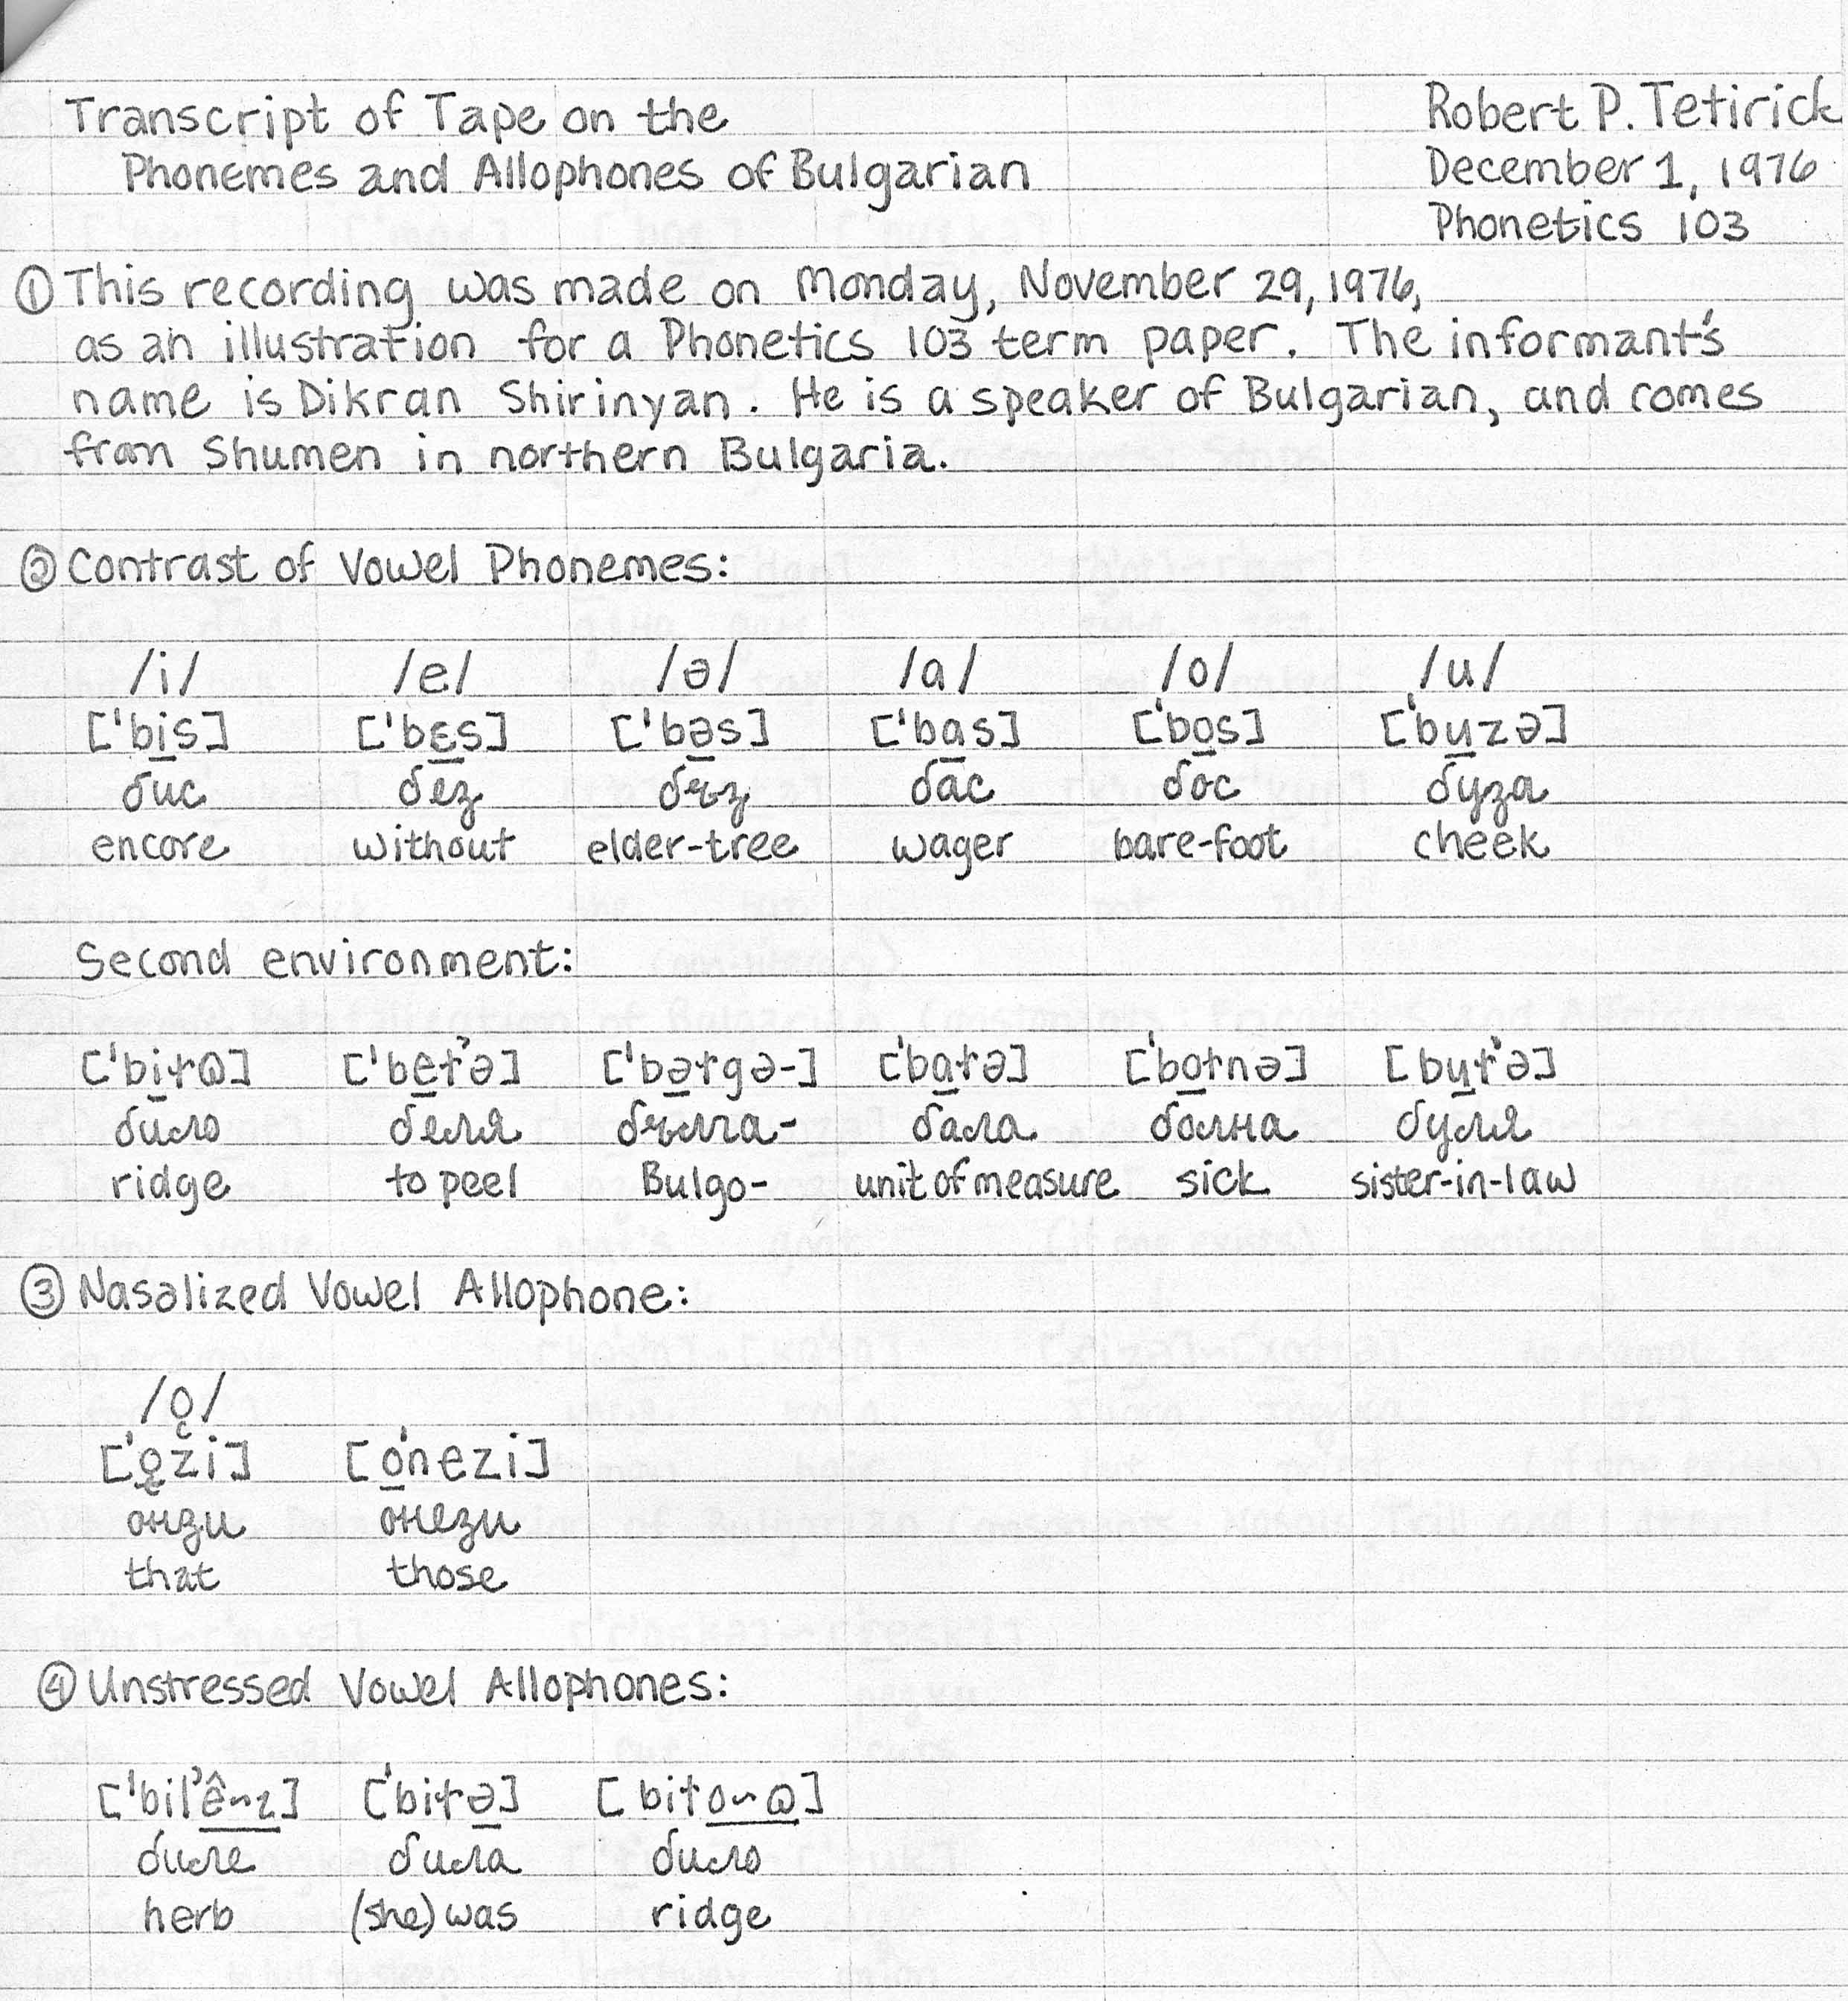 Transcript of Tape on the
Phonemes and Allophones of Bulgarian
Robert P. Tetirick
December 1, 1976
Phonetics 103
① This recording was made on Monday, November 29, 1976,
as an illustration for a Phonetics 103 term paper. The informant's
name is Dikran Shirinyan. He is a speaker of Bulgarian, and comes
from Shumen in northern Bulgaria.
② Contrast of Vowel Phonemes:
/i/ /e/ /ə/ /a/ /o/ /u/
[ˈbi̲s] [ˈbɛ̲s] [ˈbə̲s] [ˈba̲s] [ˈbo̲s] [ˈbu̲zə]
бис без бъз бас бос буза
encore without elder-tree wager bare-foot cheek
Second environment:
[ˈbi̲ɫɷ] [ˈbe̲ɫ'ə] [ˈbə̲ɫgə-] [ˈba̲ɫə] [ˈbo̲ɫnə] [bu̲ɫ'ə]
било беля бълга- бала болна буля
ridge to peel Bulgo- unit of measure sick sister-in-law
③ Nasalized Vowel Allophone:
/ǫ/
[ˈǫ̲zi] [o̲ˈnezi]
онзи онези
that those
④ Unstressed Vowel Allophones:
[ˈbil'ê~ɪ] [ˈbiɫə̲] [biɫo~ɷ]
биле била било
herb (she) was ridge